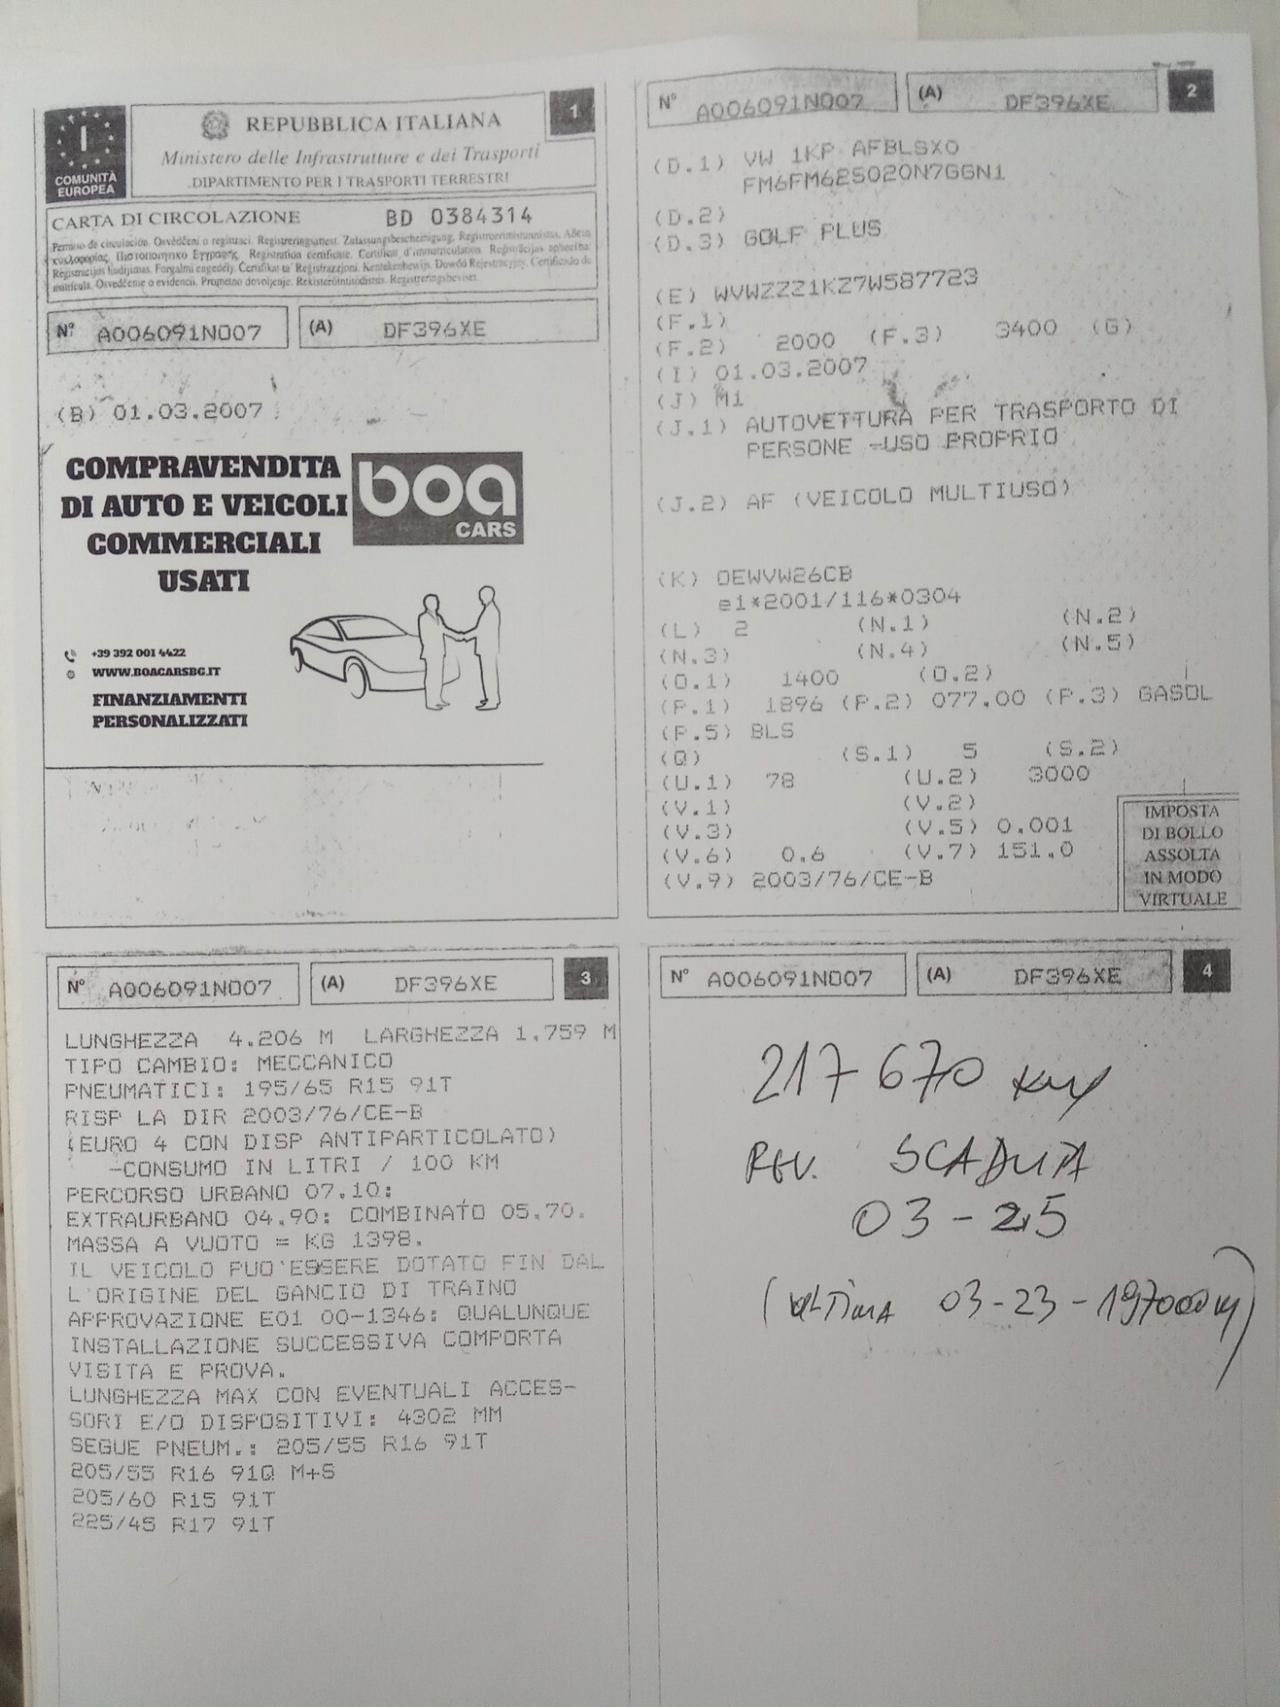 I
COMUNITÀ
EUROPEA
REPUBBLICA ITALIANA
Ministero delle Infrastrutture e dei Trasporti
DIPARTIMENTO PER I TRASPORTI TERRESTRI
1
CARTA DI CIRCOLAZIONE BD 0384314
Permiso de circulación. Osvědčení o registraci. Registreringsattest. Zulassungsbescheinigung. Registreerimistunnistus. Άδεια
κυκλοφορίας. Πιστοποιητικό Εγγραφής. Registration certificate. Certificat d'immatriculation. Reģistrācijas apliecība.
Registracijos liudijimas. Forgalmi engedély. Ċertifikat ta' Reġistrazzjoni. Kentekenbewijs. Dowód Rejestracyjny. Certificado de
matrícula. Osvedčenie o evidencii. Prometno dovoljenje. Rekisteröintitodistus. Registreringsbeviset.
N° A006091N007 (A) DF396XE
(B) 01.03.2007
COMPRAVENDITA
DI AUTO E VEICOLI
COMMERCIALI
USATI
boa
CARS
+39 392 001 4422
WWW.BOACARSBG.IT
FINANZIAMENTI
PERSONALIZZATI
N° A006091N007 (A) DF396XE 2
(D.1) VW 1KP AFBLSX0
FM6FM62S020N7GGN1
(D.2)
(D.3) GOLF PLUS
(E) WVWZZZ1KZ7W587723
(F.1)
(F.2) 2000 (F.3) 3400 (G)
(I) 01.03.2007
(J) M1
(J.1) AUTOVETTURA PER TRASPORTO DI
PERSONE -USO PROPRIO
(J.2) AF (VEICOLO MULTIUSO)
(K) OEWVW26CB
e1*2001/116*0304
(L) 2 (N.1) (N.2)
(N.3) (N.4) (N.5)
(O.1) 1400 (O.2)
(P.1) 1896 (P.2) 077.00 (P.3) GASOL
(P.5) BLS
(Q) (S.1) 5 (S.2)
(U.1) 78 (U.2) 3000
(V.1) (V.2)
(V.3) (V.5) 0.001
(V.6) 0.6 (V.7) 151.0
(V.9) 2003/76/CE-B
IMPOSTA
DI BOLLO
ASSOLTA
IN MODO
VIRTUALE
N° A006091N007 (A) DF396XE 3
LUNGHEZZA 4.206 M LARGHEZZA 1.759 M
TIPO CAMBIO: MECCANICO
PNEUMATICI: 195/65 R15 91T
RISP LA DIR 2003/76/CE-B
(EURO 4 CON DISP ANTIPARTICOLATO)
-CONSUMO IN LITRI / 100 KM
PERCORSO URBANO 07.10:
EXTRAURBANO 04.90: COMBINATO 05.70.
MASSA A VUOTO = KG 1398.
IL VEICOLO PUO'ESSERE DOTATO FIN DAL
L'ORIGINE DEL GANCIO DI TRAINO
APPROVAZIONE E01 00-1346: QUALUNQUE
INSTALLAZIONE SUCCESSIVA COMPORTA
VISITA E PROVA.
LUNGHEZZA MAX CON EVENTUALI ACCES-
SORI E/O DISPOSITIVI: 4302 MM
SEGUE PNEUM.: 205/55 R16 91T
205/55 R16 91Q M+S
205/60 R15 91T
225/45 R17 91T
N° A006091N007 (A) DF396XE 4
217670 km
REV. SCADUTA
03-25
(ULTIMA 03-23-197000 km)